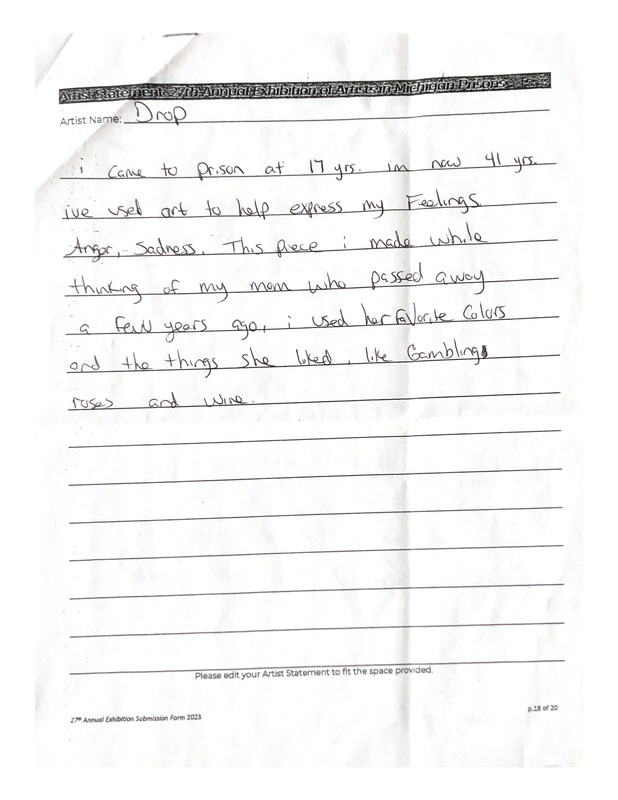 Artist Statement: 27th Annual Exhibition of Artists in Michigan Prisons
Artist Name: Drop
i Came to prison at 17 yrs. im now 41 yrs.
ive used art to help express my Feelings
Anger, Sadness. This piece i made while
thinking of my mom who passed away
a few years ago, i used her favorite Colors
and the things she liked, like Gambling
roses and wine.
Please edit your Artist Statement to fit the space provided.
27th Annual Exhibition Submission Form 2023
p.18 of 20